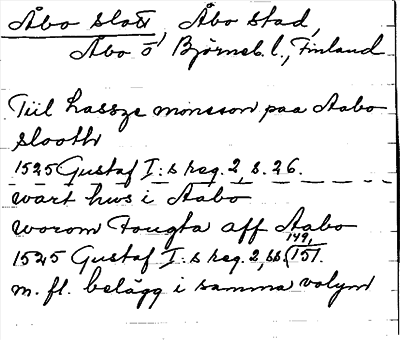 Åbo slott, Åbo stad,
Åbo o Björneb. l., Finland
Tiil hassze monsson paa Aabo
slooth
1525 Gustaf I:s reg. 2, s. 26.
wart hws i Aabo
worom Fougta aff Aabo
1525 Gustaf I:s reg. 2, ss. (149, 151.
m. fl. belägg i samma volym